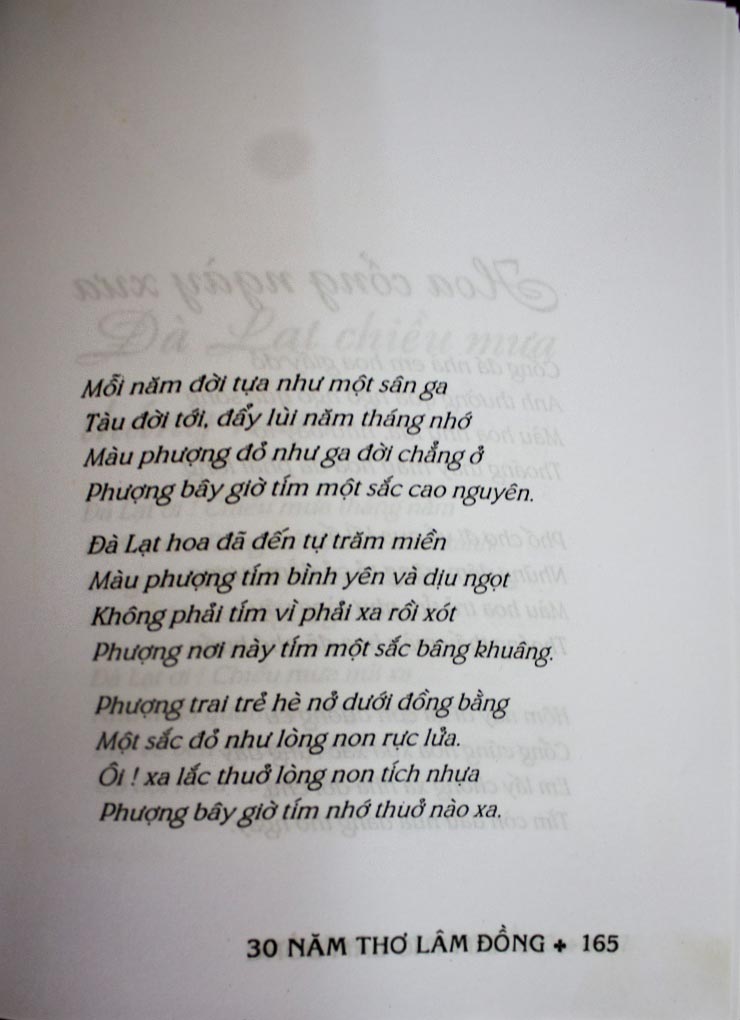 Mỗi năm đời tựa như một sân ga
Tàu đời tới, đẩy lùi năm tháng nhớ
Màu phượng đỏ như ga đời chẳng ở
Phượng bây giờ tím một sắc cao nguyên.
Đà Lạt hoa đã đến tự trăm miền
Màu phượng tím bình yên và dịu ngọt
Không phải tím vì phải xa rồi xót
Phượng nơi này tím một sắc bâng khuâng.
Phượng trai trẻ hè nở dưới đồng bằng
Một sắc đỏ như lòng non rực lửa.
Ôi ! xa lắc thuở lòng non tích nhựa
Phượng bây giờ tím nhớ thuở nào xa.
30 NĂM THƠ LÂM ĐỒNG ✚ 165